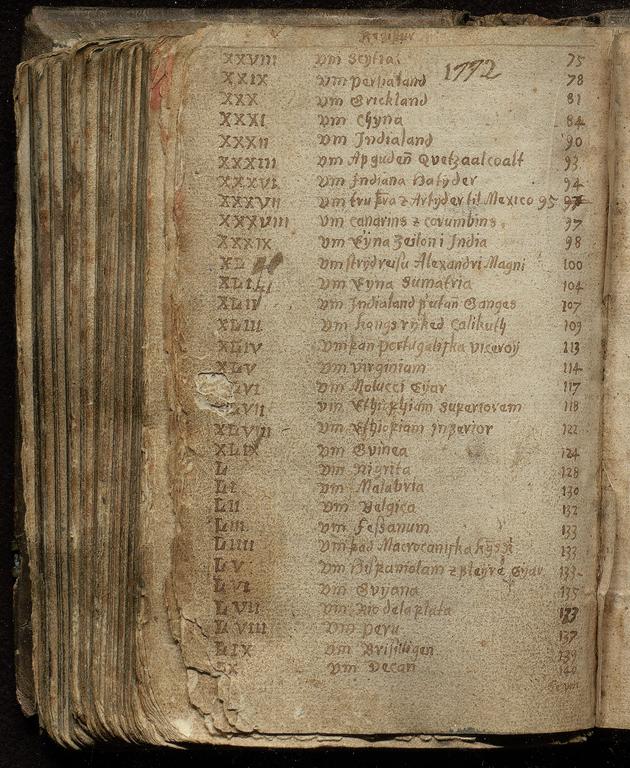 Registur
1772
XXVIII Vm Scytia 75
XXIX Vm Persialand 78
XXX Vm Grickland 81
XXXI Vm Chyna 84
XXXII Vm Indialand 90
XXXIII Vm Afguden Quetzaalcoalt 93
XXXVI Vm Indiana Batyder 94
XXXVII Vm til Mexico 95
XXXVIII Vm Canarins z Corumbins 97
XXXIX Vm Eyna Zeilon i India 98
XL Vm Alexandri Magni 100
XLI Vm Eyna Sumatria 104
XLII Vm Indialand Ganges 107
XLIII Vm kongsryked Calikuth 109
XLIV Vm Portugaliska Viceroÿ 113
XLV Vm Virginiam 114
XLVI Vm Molucci Eyar 117
XLVII Vm Ethiophiam Superiorem 118
XLVIII Vm Ethiopiam Inferior 122
XLIX Vm Guinea 124
L Vm Nigrita 128
LI Vm Malabria 130
LII Vm Belgica 132
LIII Vm Fessanum 133
LIIII Vm þad 133
LV Vm Hispaniolam z fleyre Eyar 133
LVI Vm Guyana 135
LVII Vm Rio de la plata
LVIII Vm Peru 137
LIX Vm 139
LX Vm Decan 140